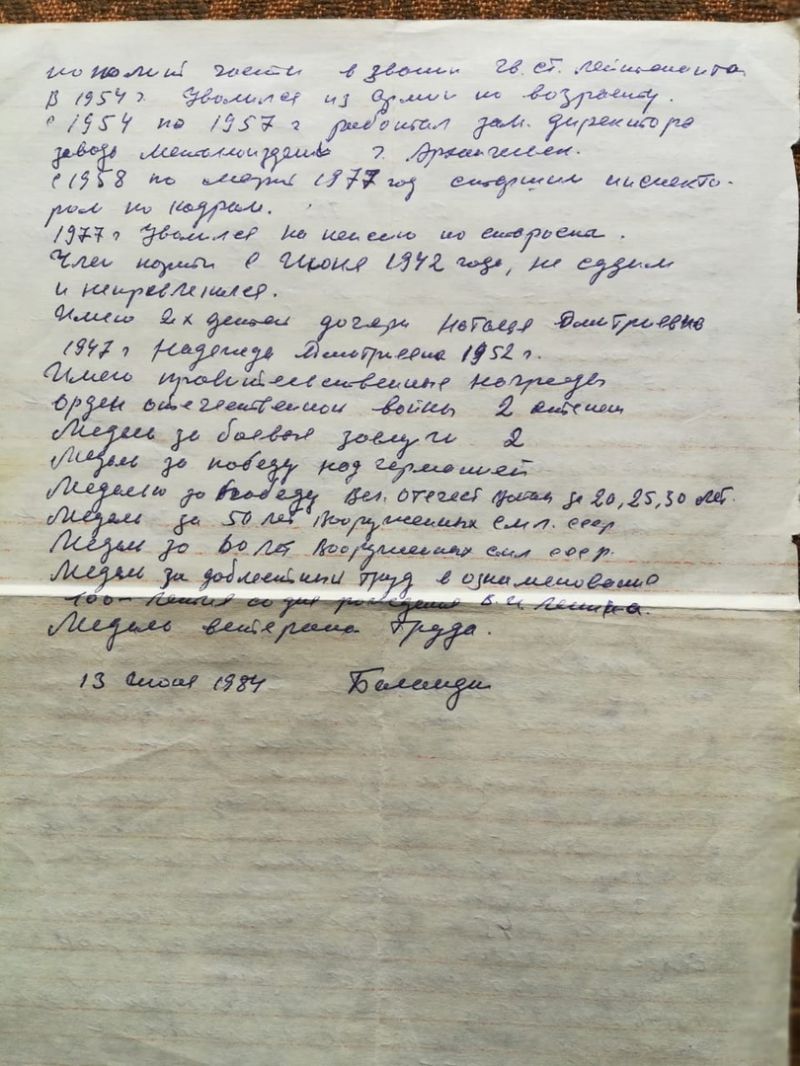 части в звании гв. ст. лейтенанта
В 1954 г. Уволился из армии по возрасту.
с 1954 по 1957 г работал зам. директора
завода г. Архангельск.
с 1958 по 1977 год старшим инспекто-
ром по кадрам.
1977 г Уволился на пенсию по старости.
Член партии с Июня 1942 года, не судим
и
Имею 2х детей дочери Наталья Дмитриевна
1947 г Надежда Дмитриевна 1952 г.
Имею правительственные награды
Орден отечественной войны 2 степени
Медаль за боевые заслуги 2
Медаль за победу над германией
Медалью за победу Вел. Отечест войне за 20, 25, 30 лет.
Медаль за 50 лет Вооруженных сил. ссср
Медаль за 60 лет Вооруженных сил ссср.
Медаль за доблестный труд в ознаменование
100-летия со дня рождения В. И. Ленина.
Медаль ветерана Труда.
13 1984